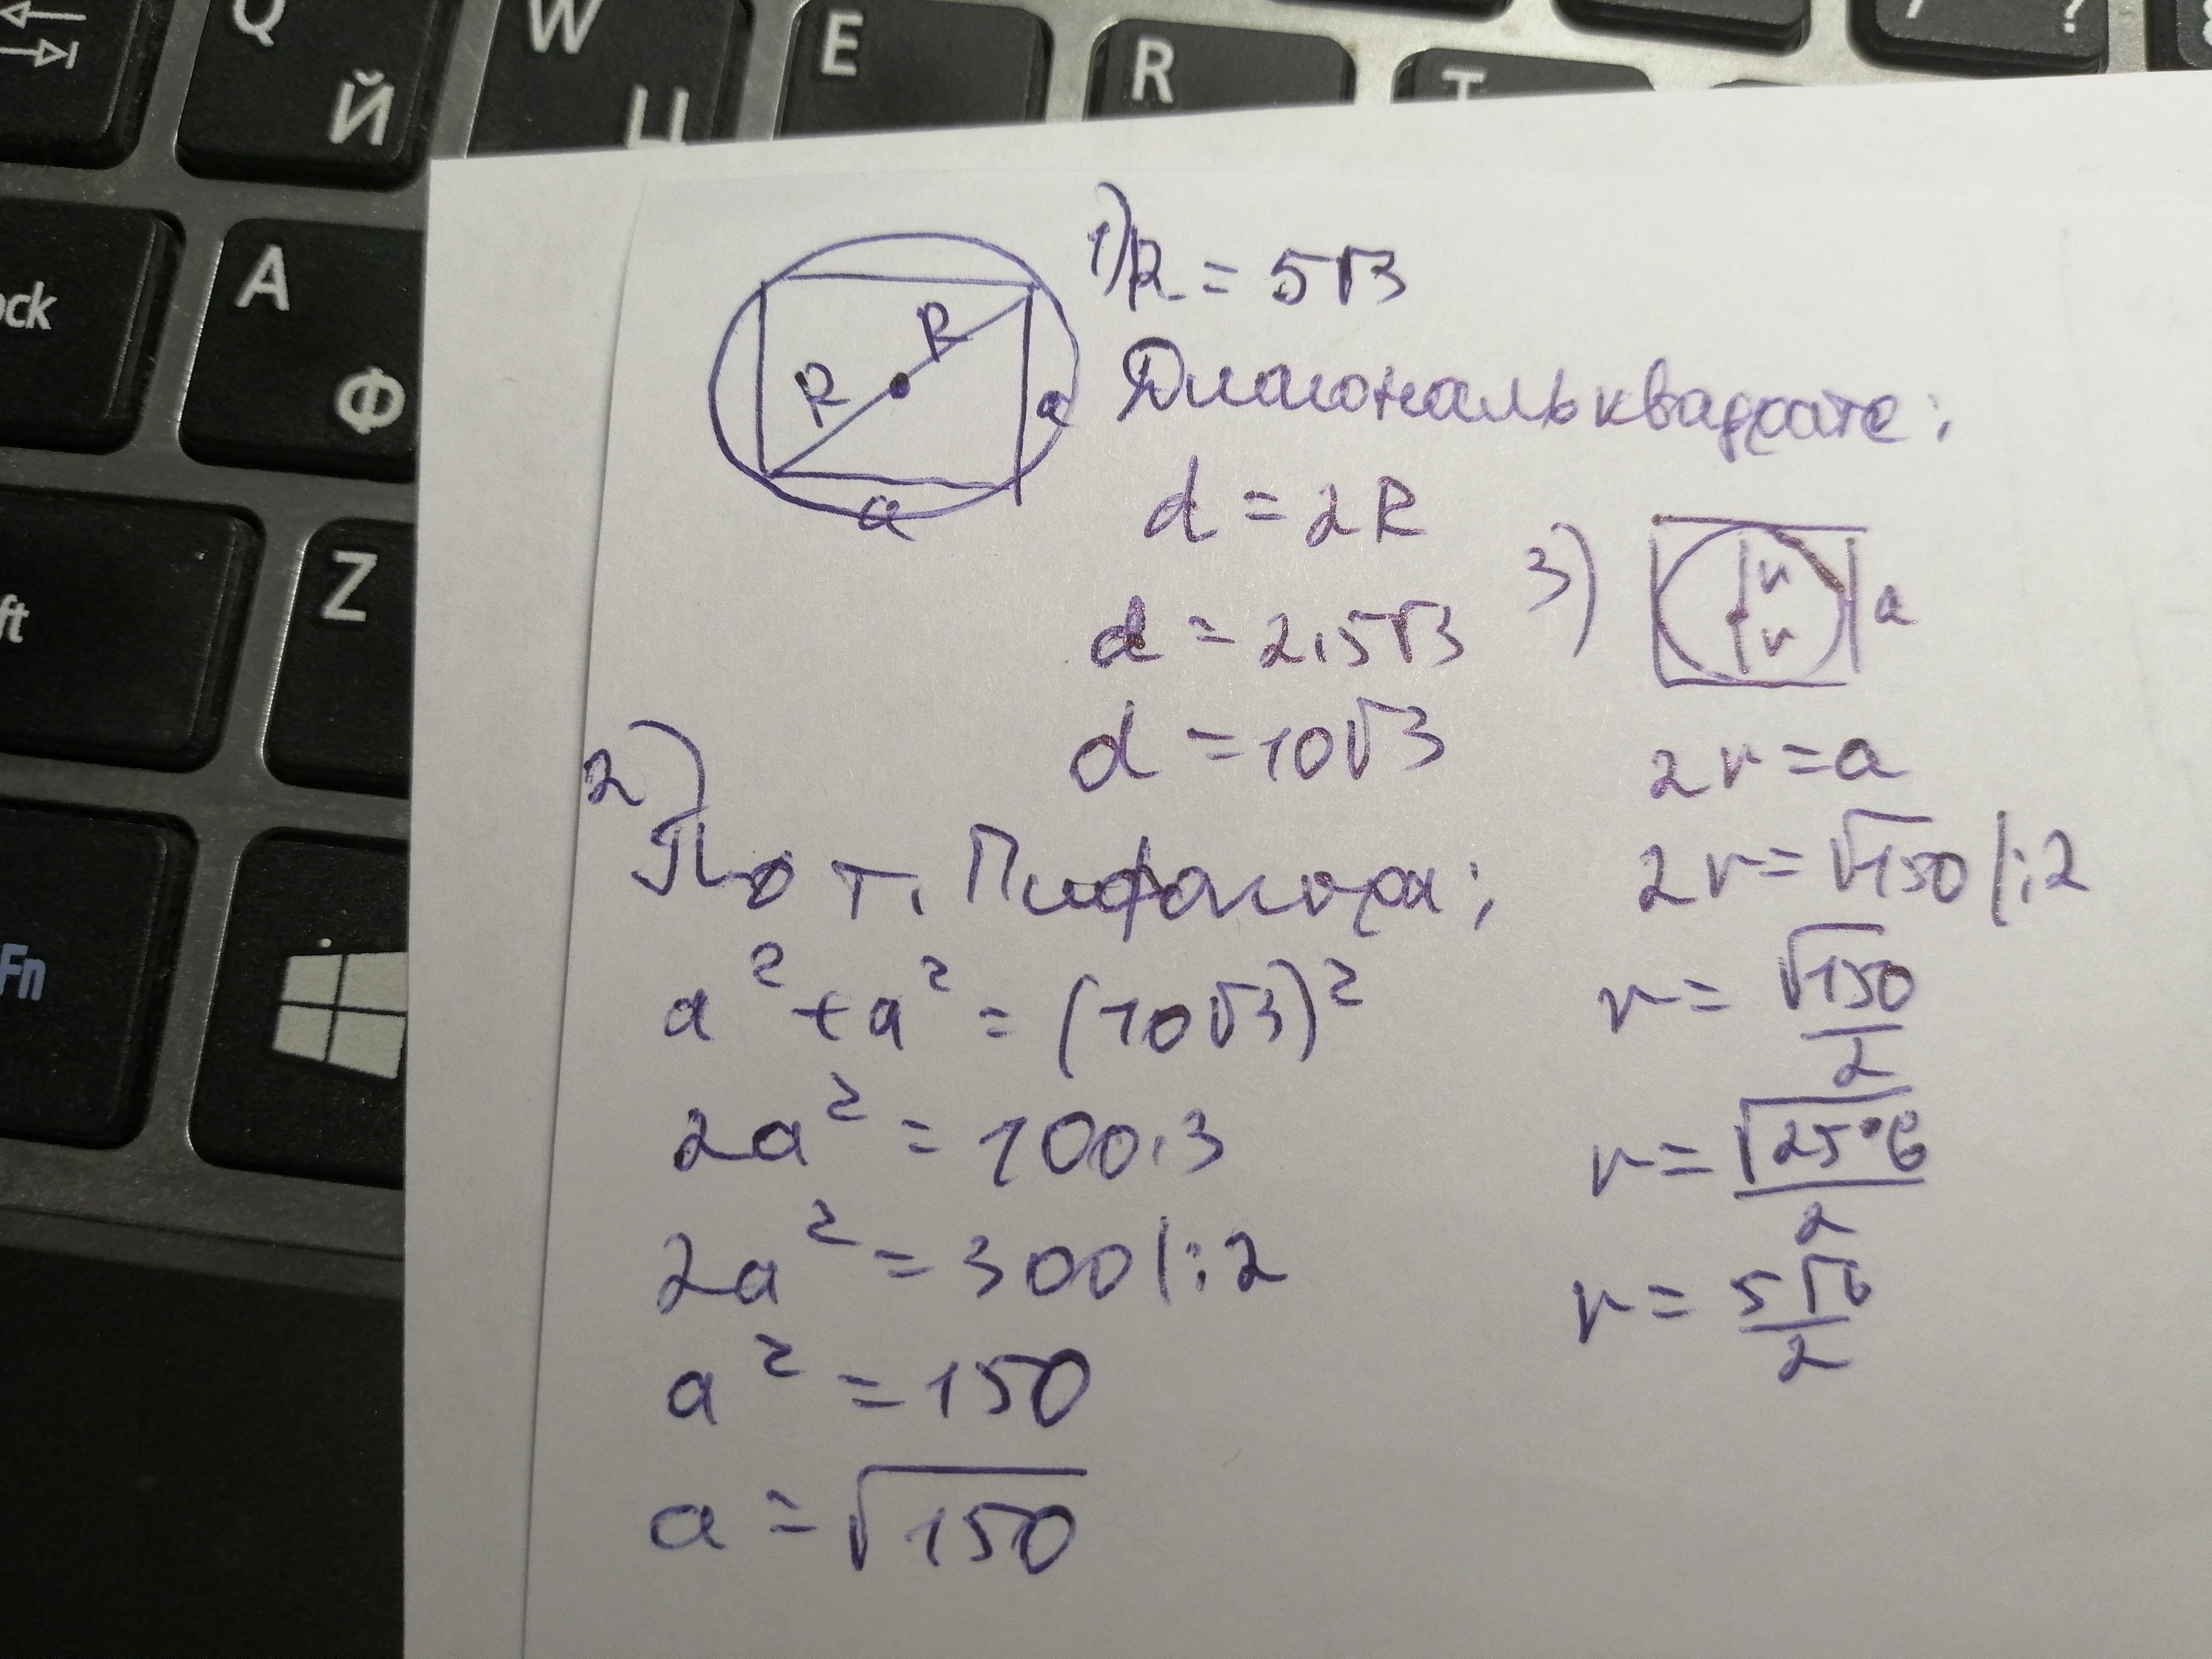 Q
Й
W
Ц
E
R
T
?
A
Ф
ock
Z
ft
Fn
R
R
a
a
1) R = 5√3
Диагональ квадрата:
d = 2R
d = 2·5√3
d = 10√3
2)
По т. Пифагора:
a² + a² = (10√3)²
2a² = 100·3
2a² = 300 |:2
a² = 150
a = √150
3)
r
r
a
2r = a
2r = √150 |:2
r = √150/2
r = √25·6/2
r = 5√6/2